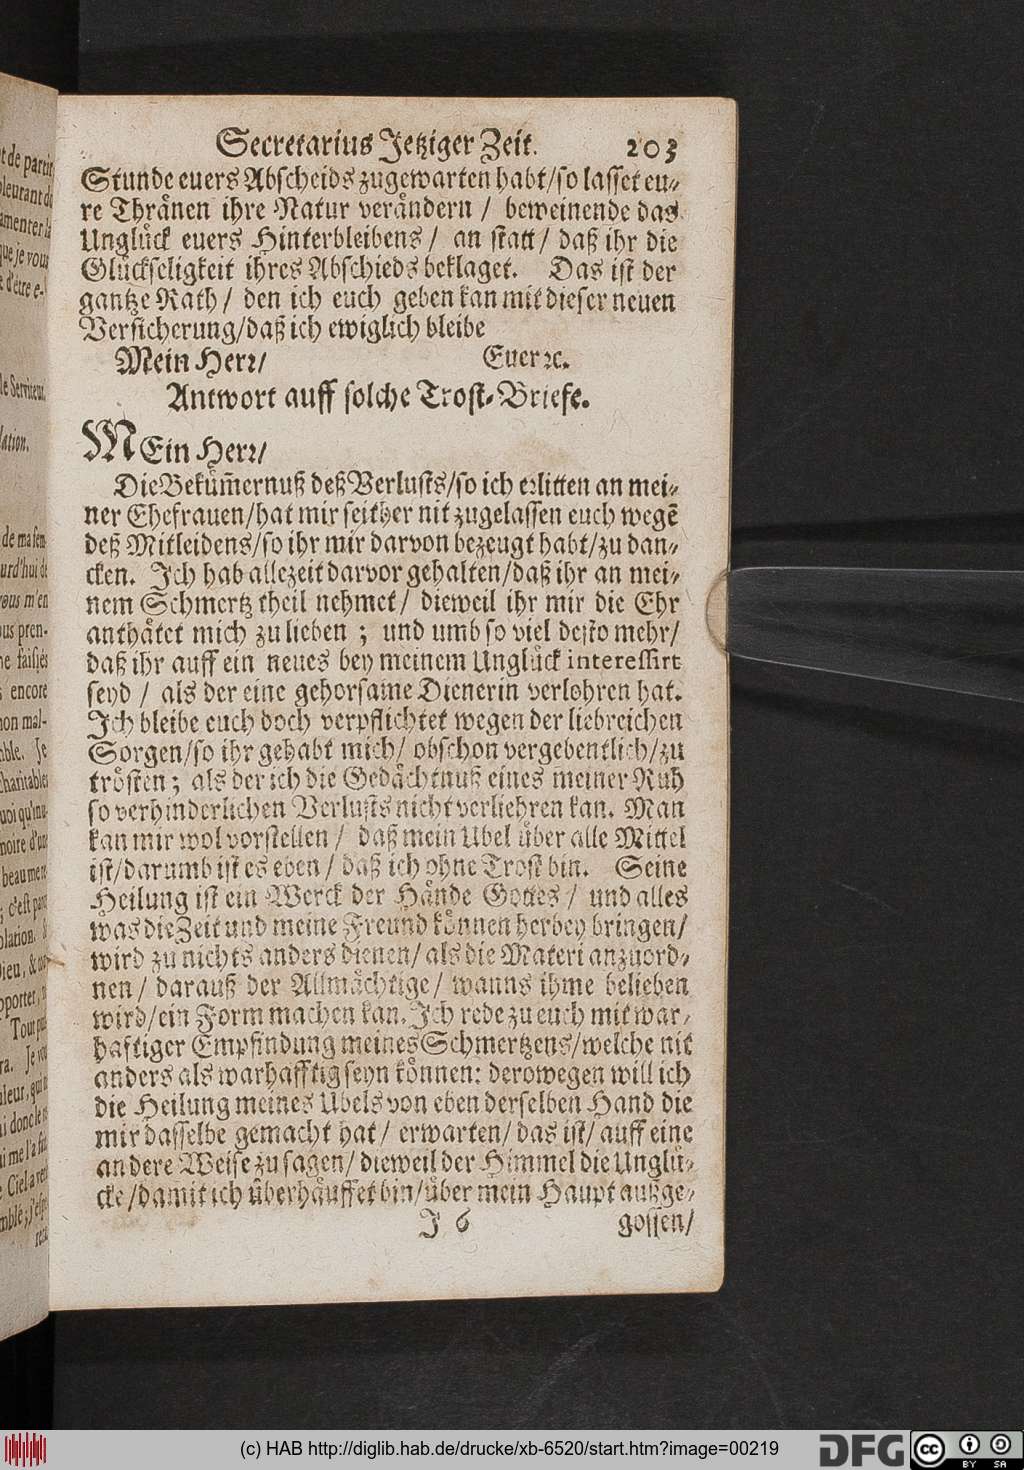 Secretarius Jetziger Zeit. 203
Stunde euers Abscheids zugewarten habt/so lasset eu-
re Thränen ihre Natur verändern / beweinende das
Unglück euers Hinterbleibens/ an statt/ daß ihr die
Glückseligkeit ihres Abschieds beklaget. Das ist der
gantze Rath/ den ich euch geben kan mit dieser neuen
Versicherung/daß ich ewiglich bleibe
Mein Herr/ Euer ꝛc.
Antwort auff solche Trost-Briefe.
MEin Herr/
Die Beküm̃ernuß deß Verlusts/so ich erlitten an mei-
ner Ehefrauen/hat mir seither nit zugelassen euch wegẽ
deß Mitleidens/so ihr mir darvon bezeugt habt/zu dan-
cken. Ich hab allezeit darvor gehalten/daß ihr an mei-
nem Schmertz theil nehmet/ dieweil ihr mir die Ehr
anthätet mich zu lieben ; und umb so viel desto mehr/
daß ihr auff ein neues bey meinem Unglück interessirt
seyd / als der eine gehorsame Dienerin verlohren hat.
Ich bleibe euch doch verpflichtet wegen der liebreichen
Sorgen/so ihr gehabt mich/ obschon vergebentlich/zu
trösten ; als der ich die Gedächtnuß eines meiner Ruh
so verhinderlichen Verlusts nicht verliehren kan. Man
kan mir wol vorstellen / daß mein Ubel über alle Mittel
ist/darumb ist es eben / daß ich ohne Trost bin. Seine
Heilung ist ein Werck der Hände Gottes / und alles
was die Zeit und meine Freund können herbey bringen/
wird zu nichts anders dienen/ als die Materi anzuord-
nen / darauß der Allmächtige / wanns ihme belieben
wird/ein Form machen kan. Ich rede zu euch mit war-
haftiger Empfindung meines Schmertzens/welche nit
anders als warhafftig seyn können: derowegen will ich
die Heilung meines Ubels von eben derselben Hand die
mir dasselbe gemacht hat/ erwarten/ das ist/ auff eine
andere Weise zu sagen/ dieweil der Himmel die Unglü-
cke/damit ich überhäuffet bin/über mein Haupt außge-
J 6 gossen/
(c) HAB http://diglib.hab.de/drucke/xb-6520/start.htm?image=00219
DFG
cc
BY SA